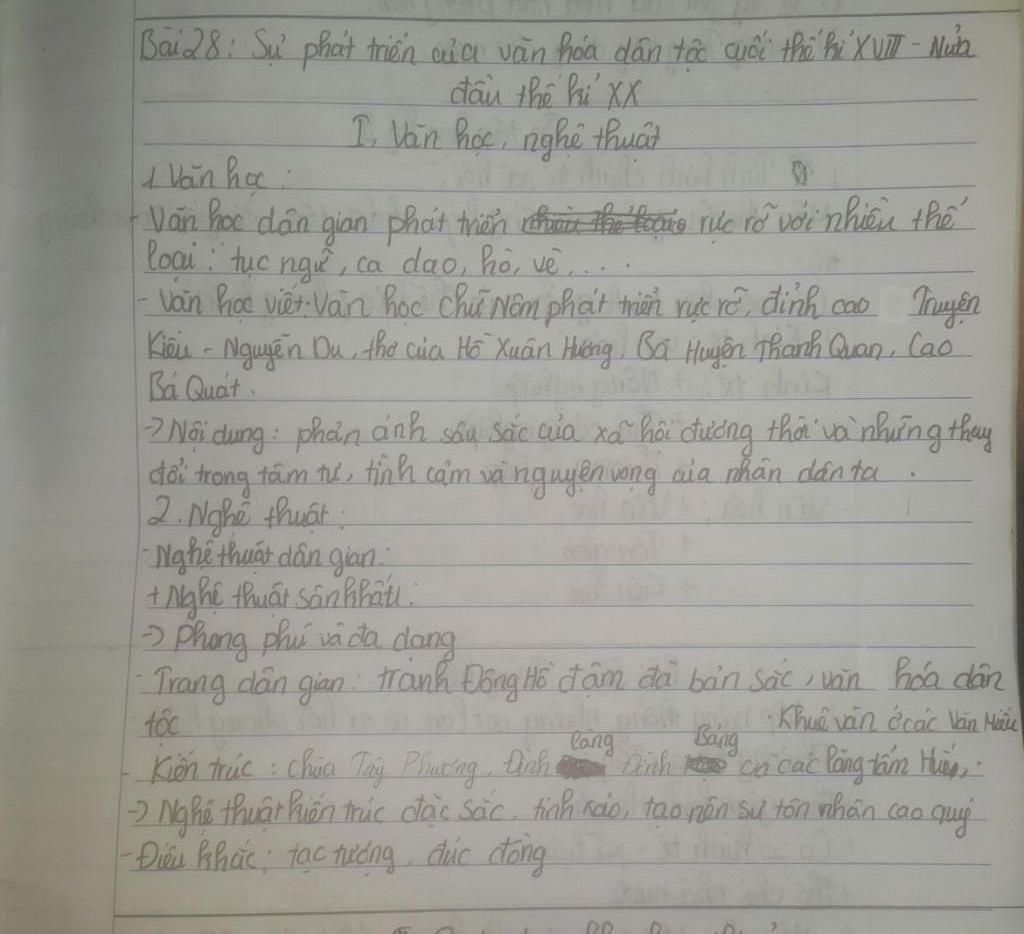 Bài 28: Sự phát triển của văn hóa dân tộc cuối thế kỉ XVIII - Nửa
đầu thế kỉ XX
I, Văn học, nghệ thuật
1 Văn học:
- Văn học dân gian phát triển rực rỡ với nhiều thể
loại: tục ngữ, ca dao, hò, vè,....
- Văn học viết: Văn học chữ Nôm phát triển rực rỡ, đỉnh cao Truyện
Kiều - Nguyễn Du, thơ của Hồ Xuân Hương, Bá Huyện Thanh Quan, Cao
Bá Quát.
-> Nội dung: phản ánh sâu sắc của xã hội đương thời và những thay
đổi trong tâm tư, tình cảm và nguyện vọng của nhân dân ta.
2. Nghệ thuật:
- Nghệ thuật dân gian:
+ Nghệ thuật sân khấu.
-> Phong phú và đa dạng
- Trang dân gian: tranh Đông Hồ đậm đà bản sắc, văn hóa dân
tộc
làng Bảng Khuê văn ở các Văn Miếu
- Kiến trúc: chùa Tây Phương, Đình Đình các lăng tẩm Huế,
-> Nghệ thuật kiến trúc đặc sắc, tinh xảo, tạo nên sự tôn nhân cao quý
- Điêu khắc: tạc tượng, đúc đồng